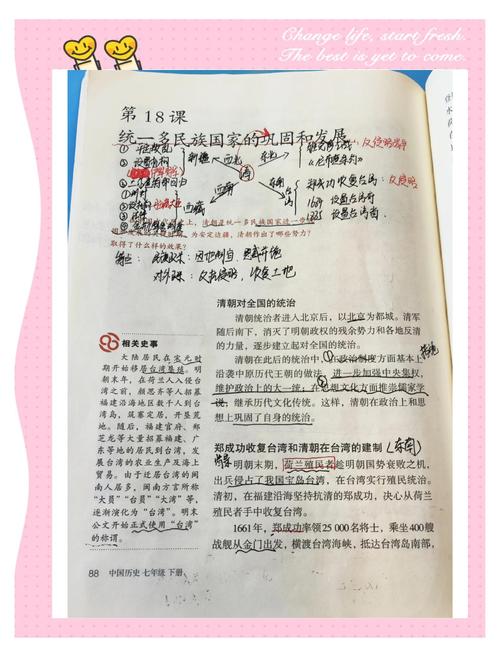 Change life, start fresh.
The best is yet to come.
第18课
统一多民族国家的巩固和发展
新疆
西北
东北
清
《尼布楚条约》
西南
西藏
台湾
郑成功收复台湾：反侵略
1684 设置台湾府
1885 设置台湾省
取得了什么样的效果？
因地制宜
清朝对全国的统治
清朝统治者进入北京后，以北京为都城。清军
随后南下，消灭了明朝政权的残余势力和各地反清
的力量，逐步建立起对全国的统治。
清朝在此后的统治中，①在政治制度方面基本上
沿袭中原历代王朝的做法，进一步加强中央集权，
维护政治上的大一统；②在思想文化方面推崇儒家学
说，继承历代文化传统。这样，清朝在政治上和思
想上巩固了自身的统治。
相关史事
大陆居民在宋元时
期开始移居台湾垦殖。明
朝末年，在荷兰人入侵台
湾之前，颜思齐等人招募
福建沿海地区数千人到台
湾岛，筑寨定居，开垦荒
地。随后，福建官府、郑
芝龙等大量招募福建、广
东等地的居民到台湾，发
展台湾的农业生产及海上
贸易。由于迁居台湾的闽
南人居多，闽南方言所称
“大員”“台員”“大湾”等，
逐渐演化为“台湾”。明末
公文开始正式使用“台湾”
的称谓。
郑成功收复台湾和清朝在台湾的建制 (东南)
明朝末期，荷兰殖民者趁明朝国势衰败之机，
出兵侵占了我国宝岛台湾，在台湾实行殖民统治。
清初，在福建沿海坚持抗清的郑成功，决心从荷兰
殖民者手中收复台湾。
1661年，郑成功率领25 000名将士，乘坐400艘
战舰从金门出发，横渡台湾海峡，抵达台湾岛南部，
88 中国历史 七年级 下册